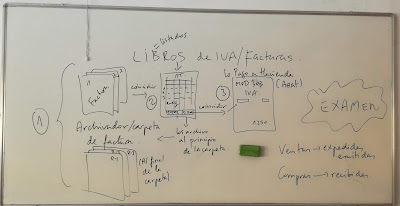 = Listados
LIBROS de IVA/Facturas.
nº
Factura
coincidir
2
nº
TOTAL
coincidir
3
Lo Paso a Hacienda
MOD 303 (Aeat)
IVA
EXAMEN
1
Archivador/carpeta
de facturas
los archivo
al principio
de la carpeta.
(Al final
de la
carpeta)
Ventas → expedidas
emitidas
Compras → recibidas